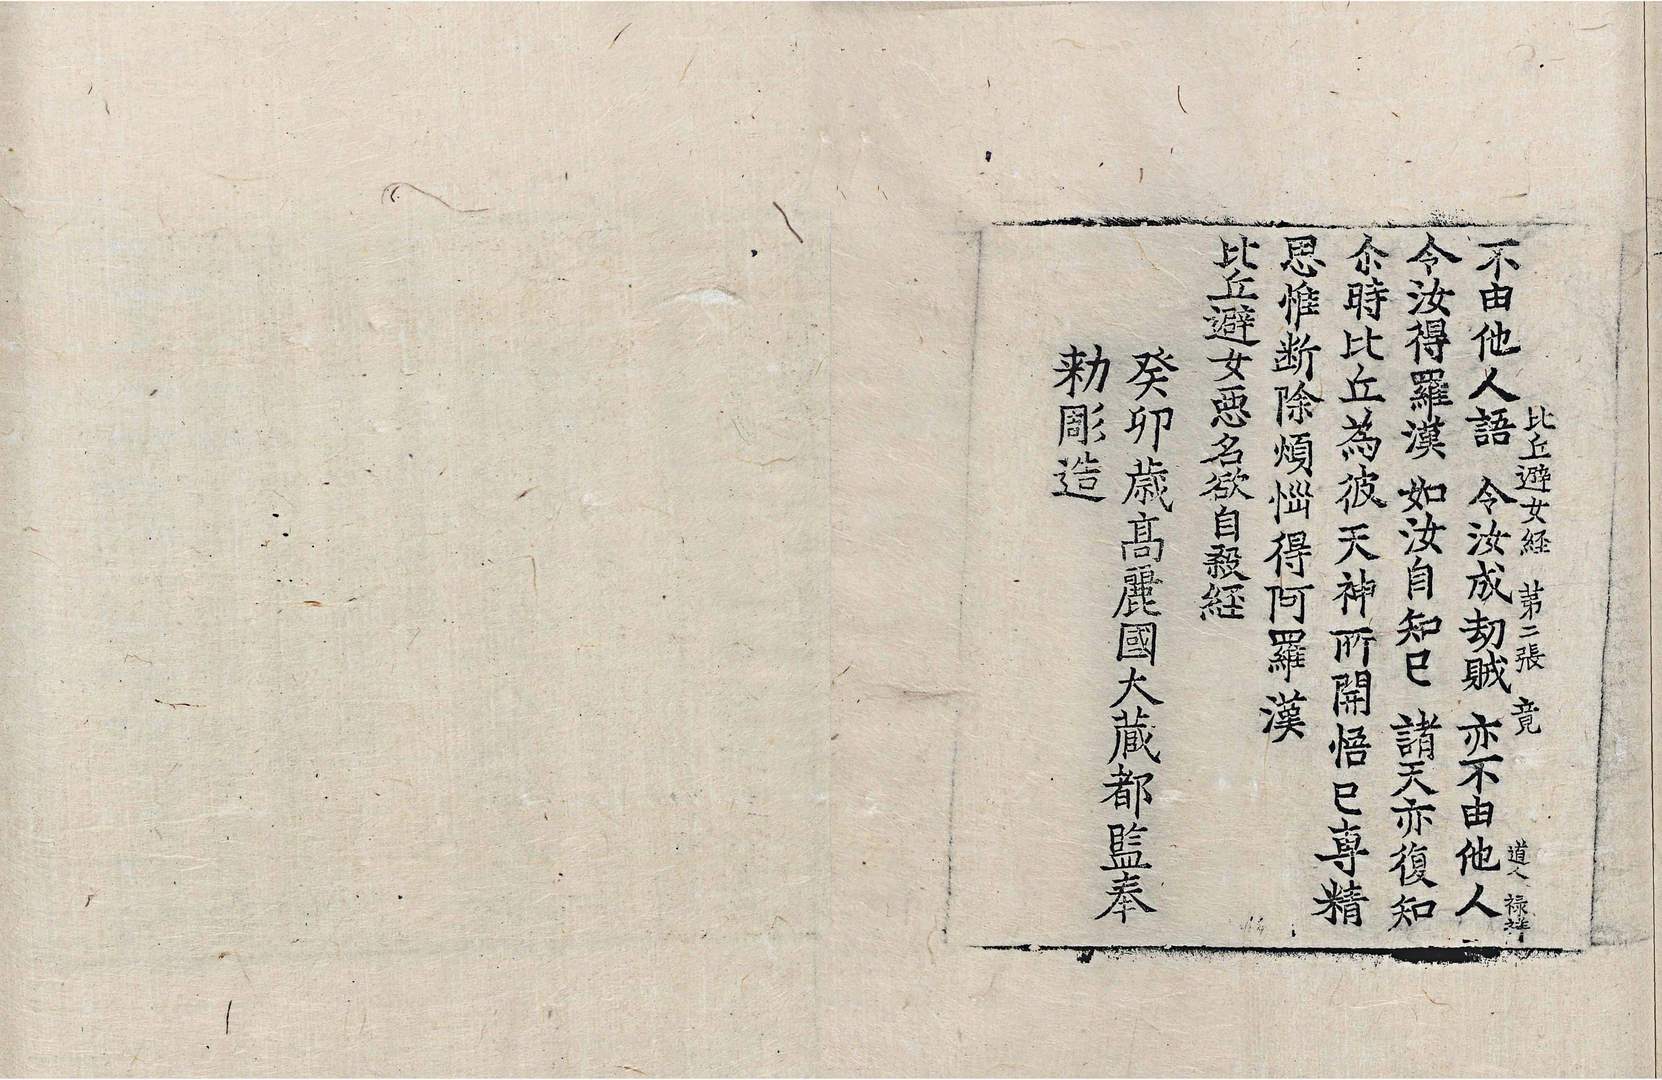 比丘避女経 第二張 竟 道人 禄祥
不由他人語 令汝成劫賊 亦不由他人
令汝得羅漢 如汝自知已 諸天亦復知
尒時比丘為彼天神所開悟已専精
思惟断除煩惱得阿羅漢
比丘避女惡名欲自殺経
癸卯歳高麗國大蔵都監奉
勑彫造